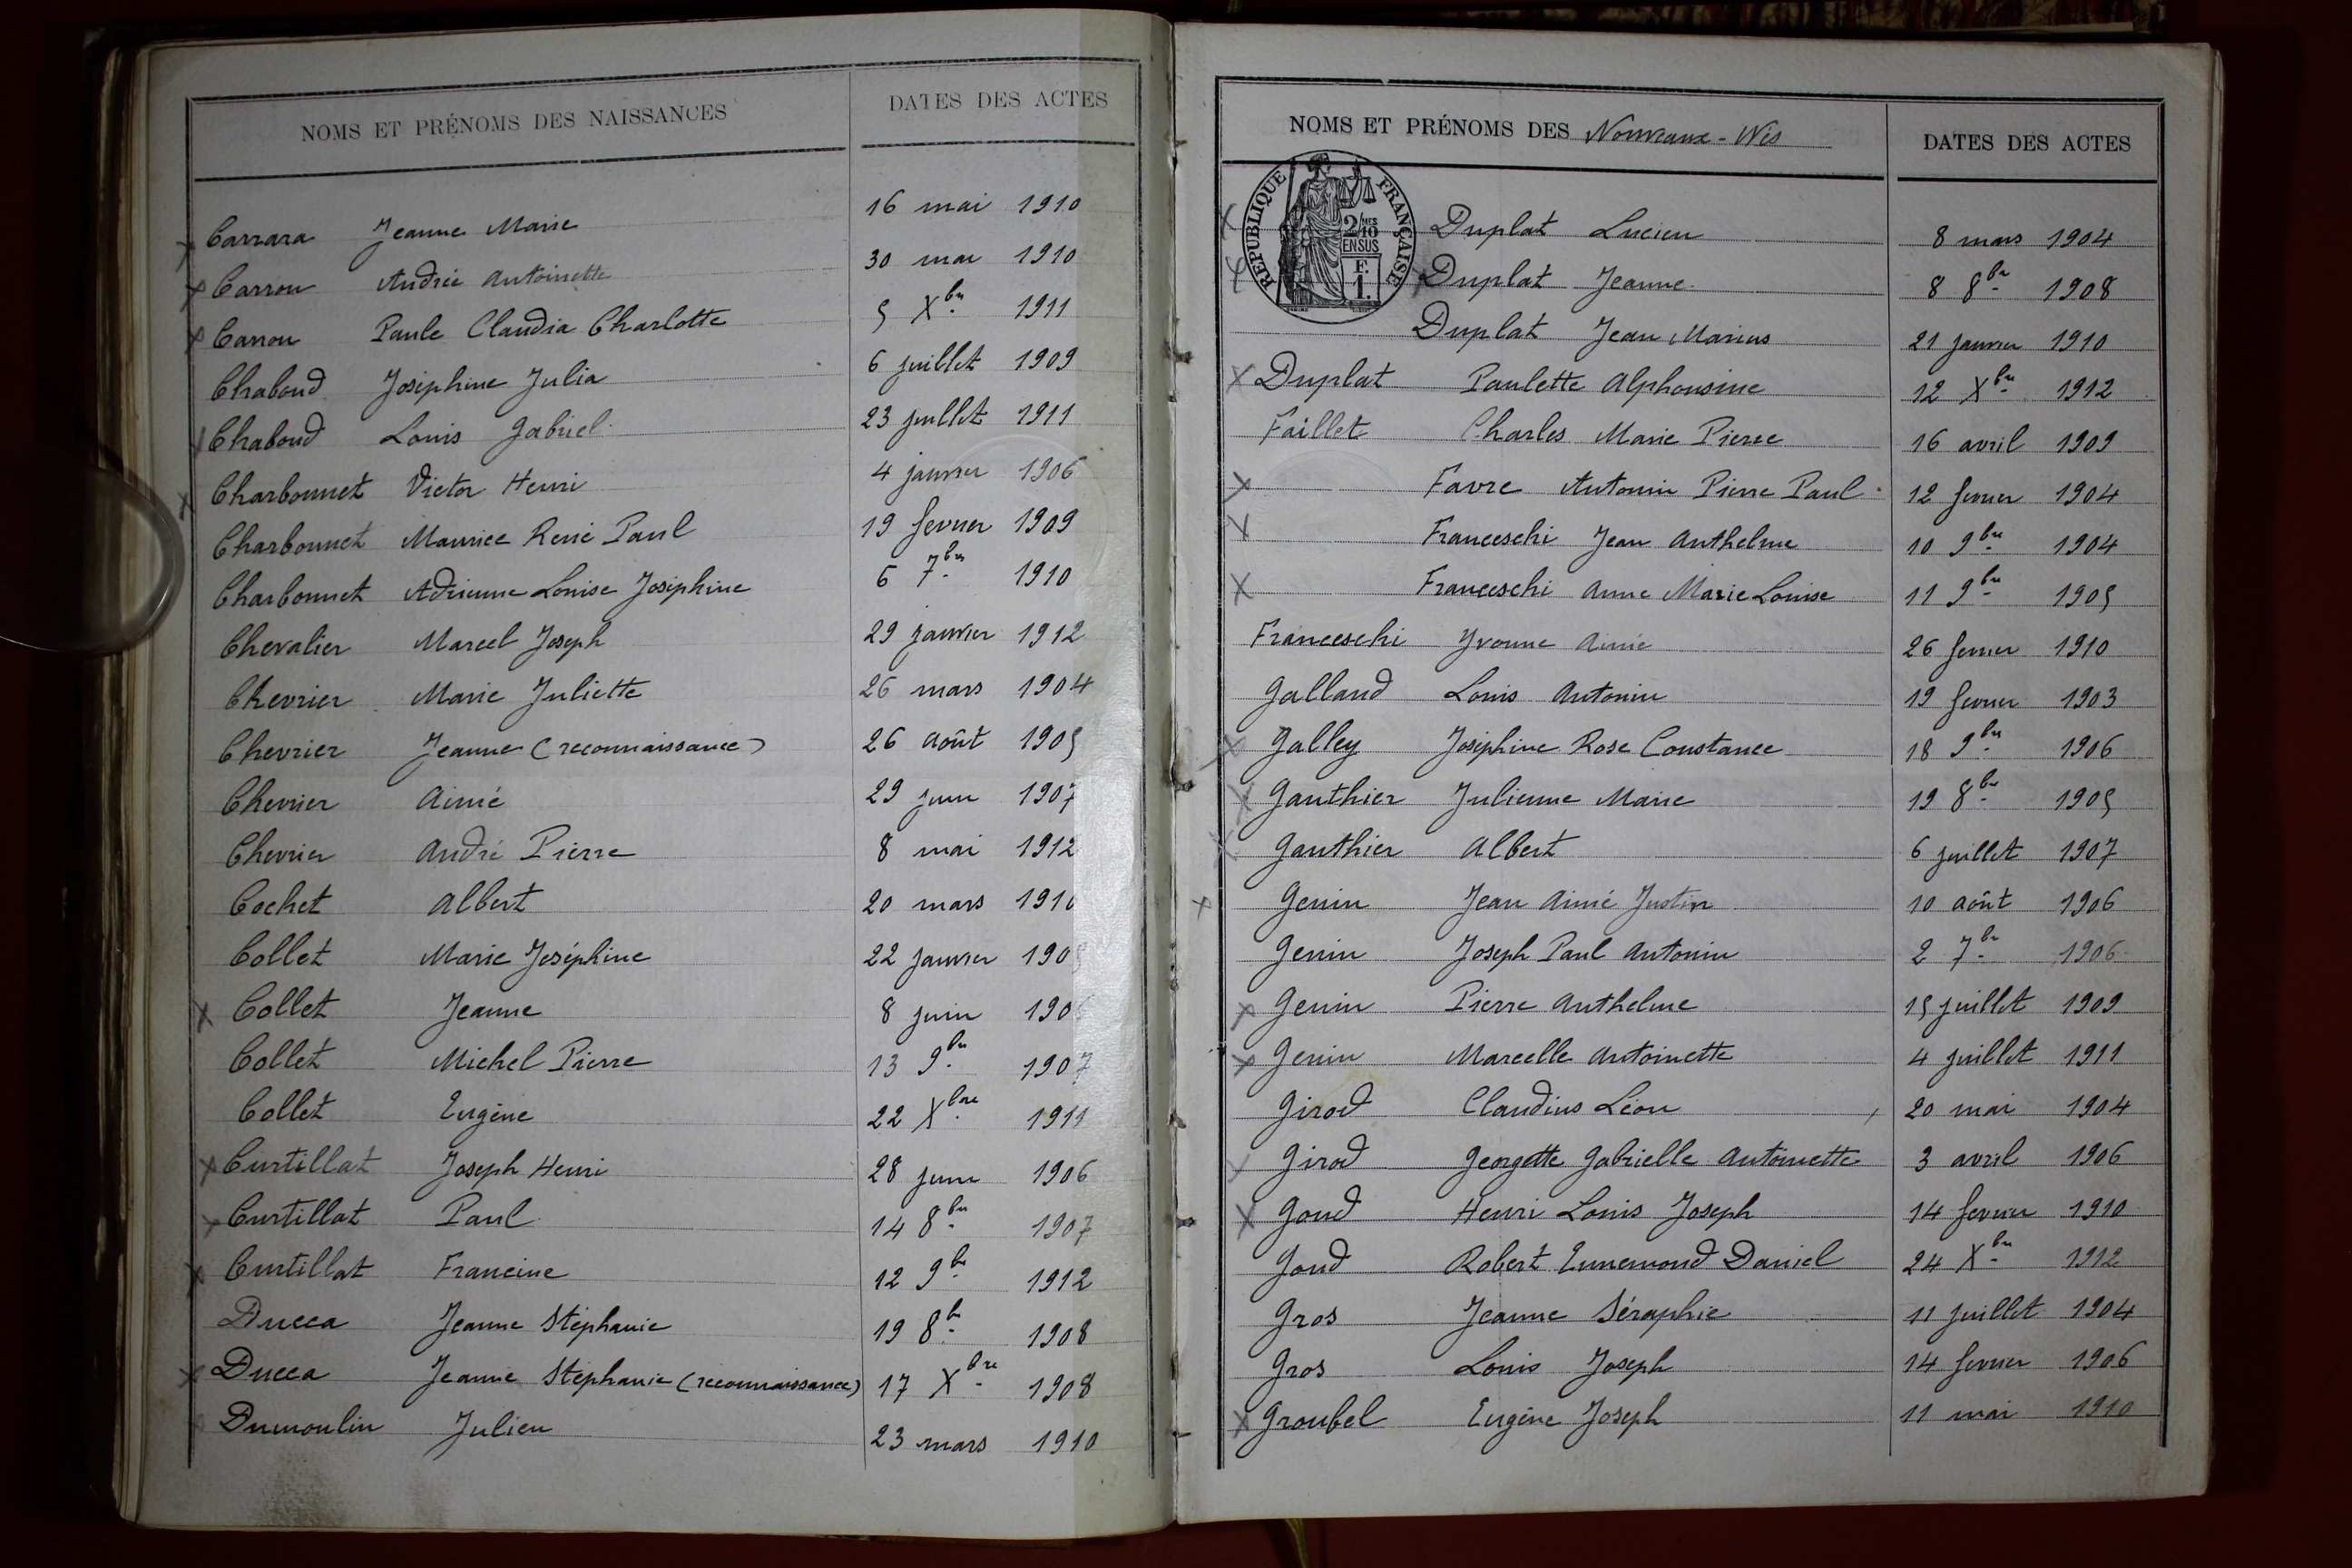 NOMS ET PRÉNOMS DES NAISSANCES DATES DES ACTES
Carrara Jeanne Marie 16 mai 1910
Carrou Andrée Antoinette 30 mai 1910
Carrou Paule Claudia Charlotte 5 Xbre 1911
Chaboud Joséphine Julia 6 juillet 1909
Chaboud Louis Gabriel 23 juillet 1911
Charbonnet Victor Henri 4 janvier 1906
Charbonnet Maurice René Paul 19 fevrier 1909
Charbonnet Adrienne Louise Joséphine 6 7bre 1910
Chevalier Marcel Joseph 29 janvier 1912
Chevrier Marie Juliette 26 mars 1904
Chevrier Jeanne (reconnaissance) 26 août 1905
Chevrier Aimé 29 juin 1907
Chevrier André Pierre 8 mai 1912
Cochet Albert 20 mars 1910
Collet Marie Joséphine 22 janvier
Collet Jeanne 8 juin
Collet Michel Pierre 13 9bre 1907
Collet Eugène 22 Xbre 1911
Curtillat Joseph Henri 28 juin 1906
Curtillat Paul 14 8bre 1907
Curtillat Francine 12 9bre 1912
Ducca Jeanne Stéphanie 19 8bre 1908
Ducca Jeanne Stéphanie (reconnaissance) 17 Xbre 1908
Dumoulin Julien 23 mars 1910
NOMS ET PRÉNOMS DES Nouveaux-Nés DATES DES ACTES
RÉPUBLIQUE FRANÇAISE
2/10 MES
EN SUS
F.
1.
Duplat Lucien 8 mars 1904
Duplat Jeanne 8 8bre 1908
Duplat Jean Marius 21 janvier 1910
Duplat Paulette Alphonsine 12 Xbre 1912
Faillet Charles Marie Pierre 16 avril 1909
Favre Antonin Pierre Paul 12 fevrier 1904
Franceschi Jean Anthelme 10 9bre 1904
Franceschi Anne Marie Louise 11 9bre 1905
Franceschi Yvonne Aimée 26 fevrier 1910
Galland Louis Antonin 19 fevrier 1903
Galley Joséphine Rose Constance 18 9bre 1906
Gauthier Julienne Marie 19 8bre 1905
Gauthier Albert 6 juillet 1907
Genin Jean Aimé Justin 10 août 1906
Genin Joseph Paul Antonin 2 7bre 1906
Genin Pierre Anthelme 15 juillet 1909
Genin Marcelle Antoinette 4 juillet 1911
Girod Claudius Léon 20 mai 1904
Girod Georgette Gabrielle Antoinette 3 avril 1906
Goud Henri Louis Joseph 14 fevrier 1910
Goud Robert Ennemond Daniel 24 Xbre 1912
Gros Jeanne Séraphie 11 juillet 1904
Gros Louis Joseph 14 fevrier 1906
Groubel Eugène Joseph 11 mai 1910